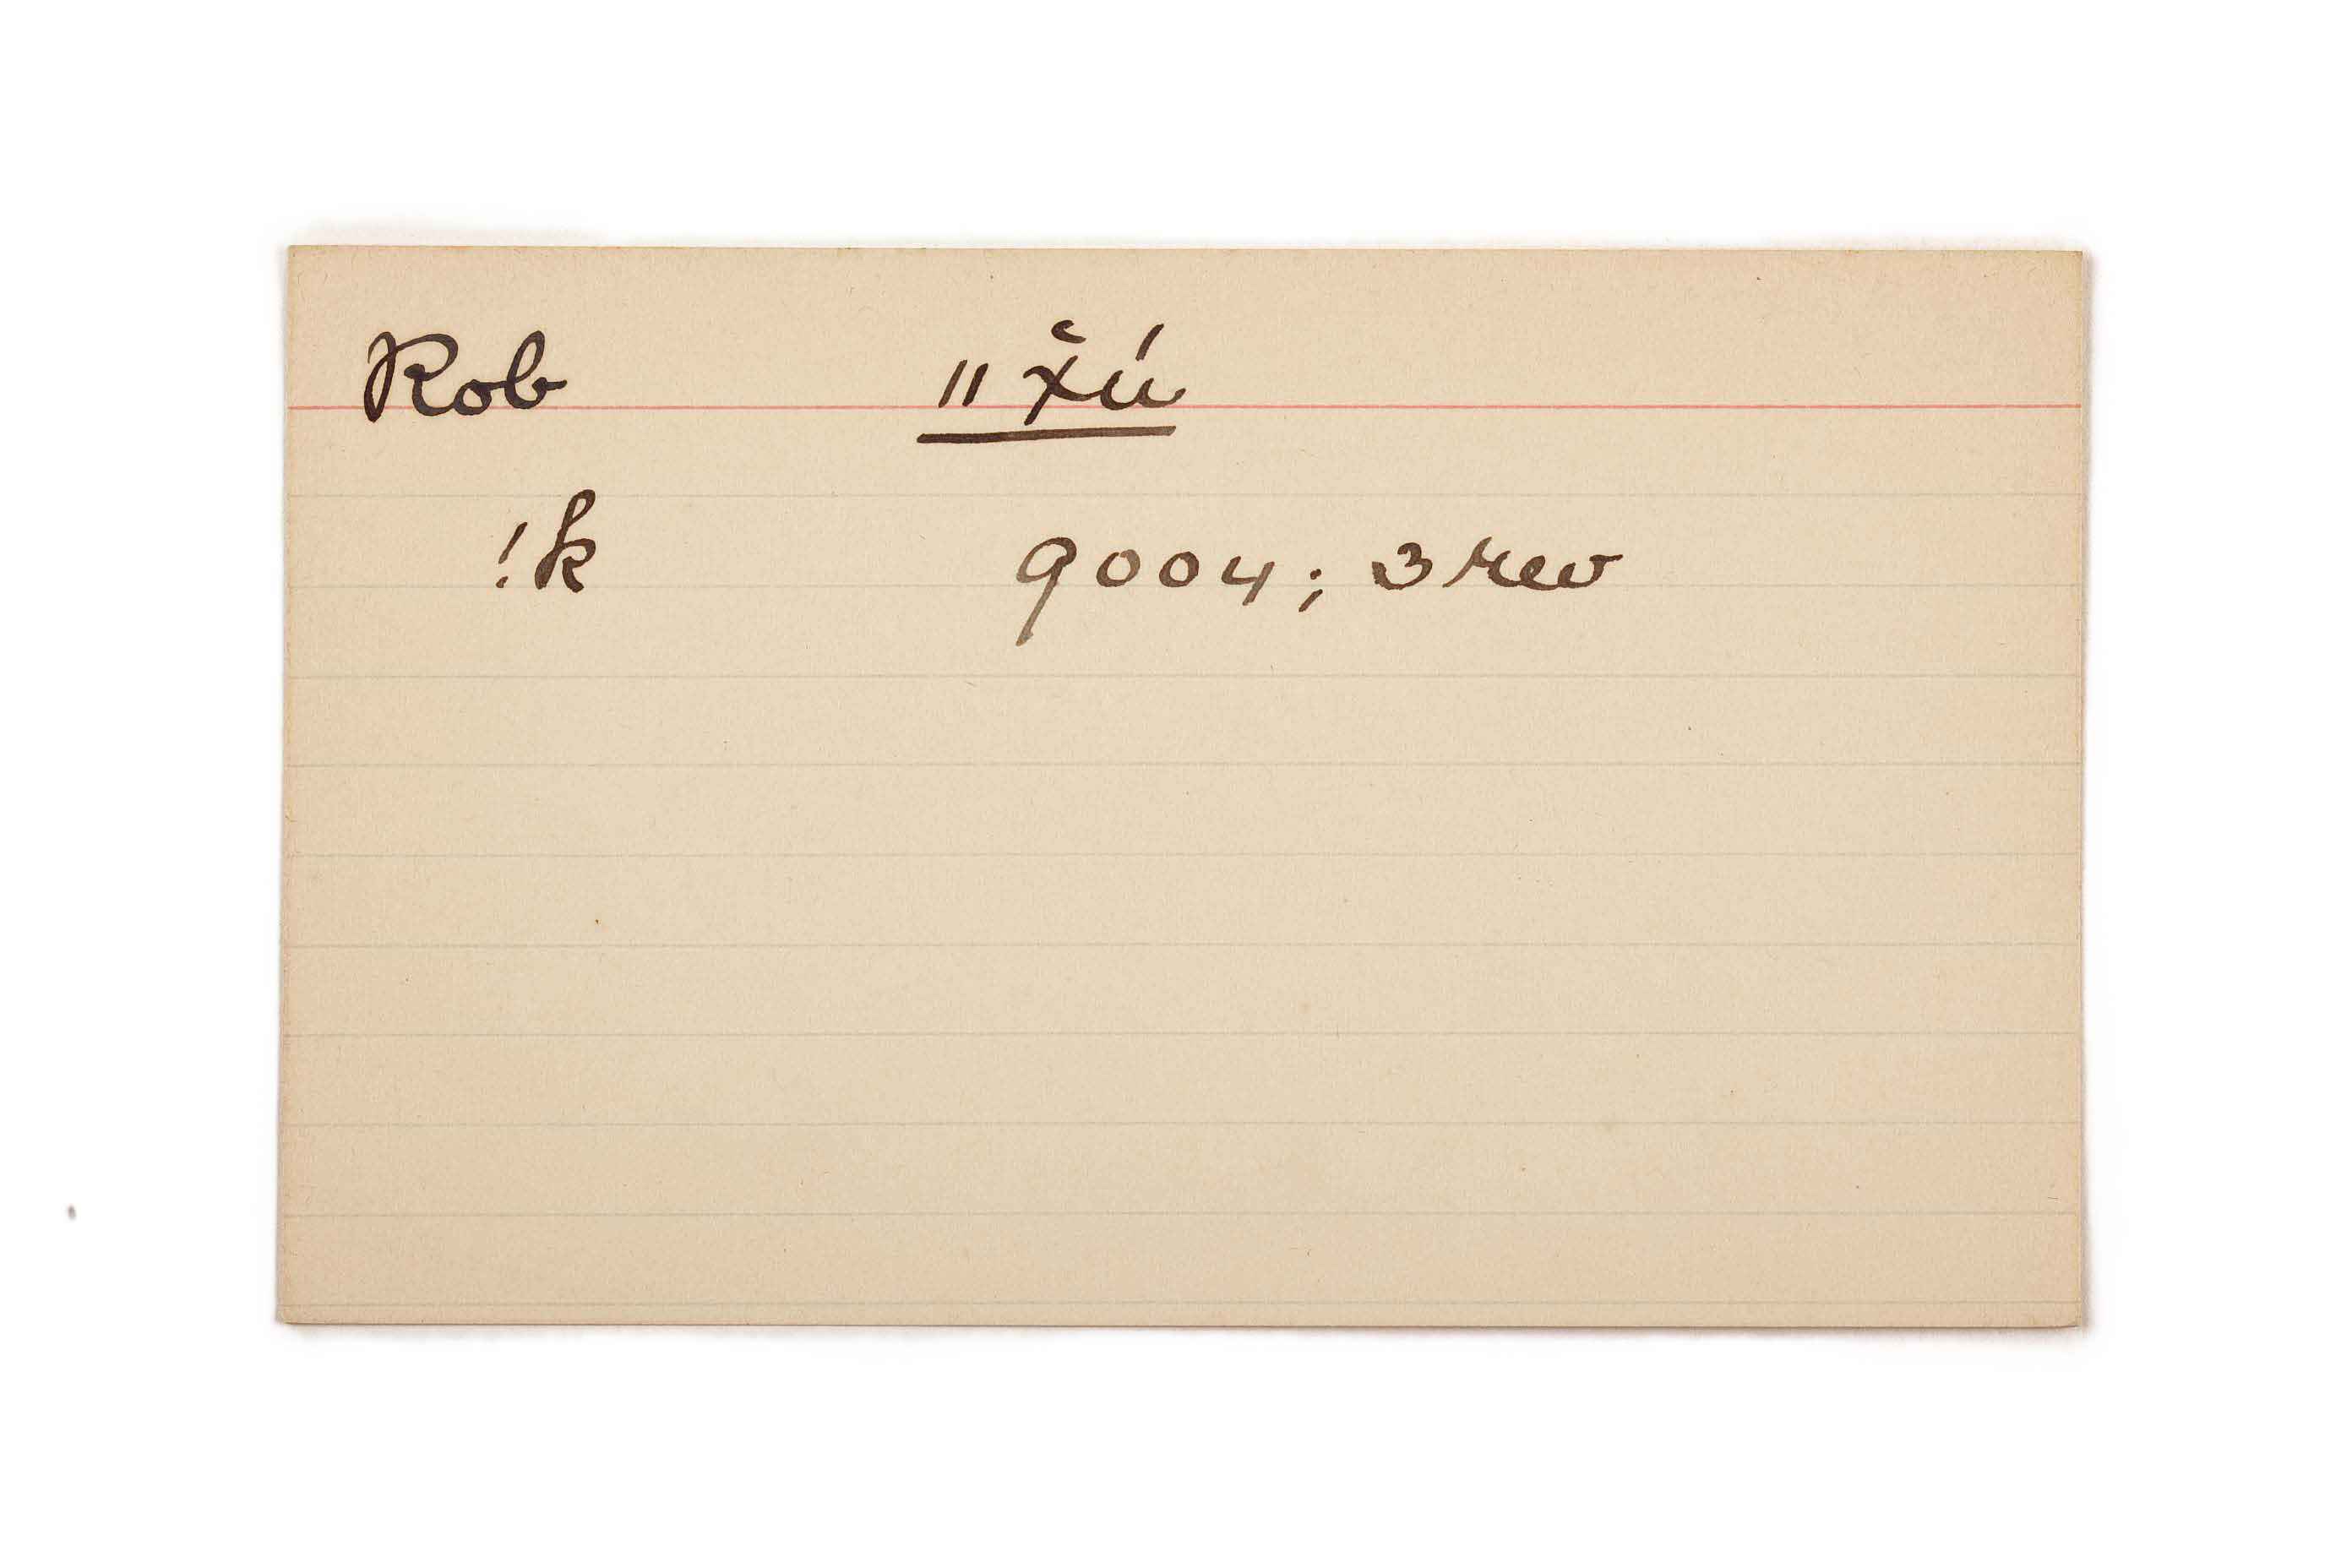 Rob ǁx̌ú
!k 9004; 3 rev